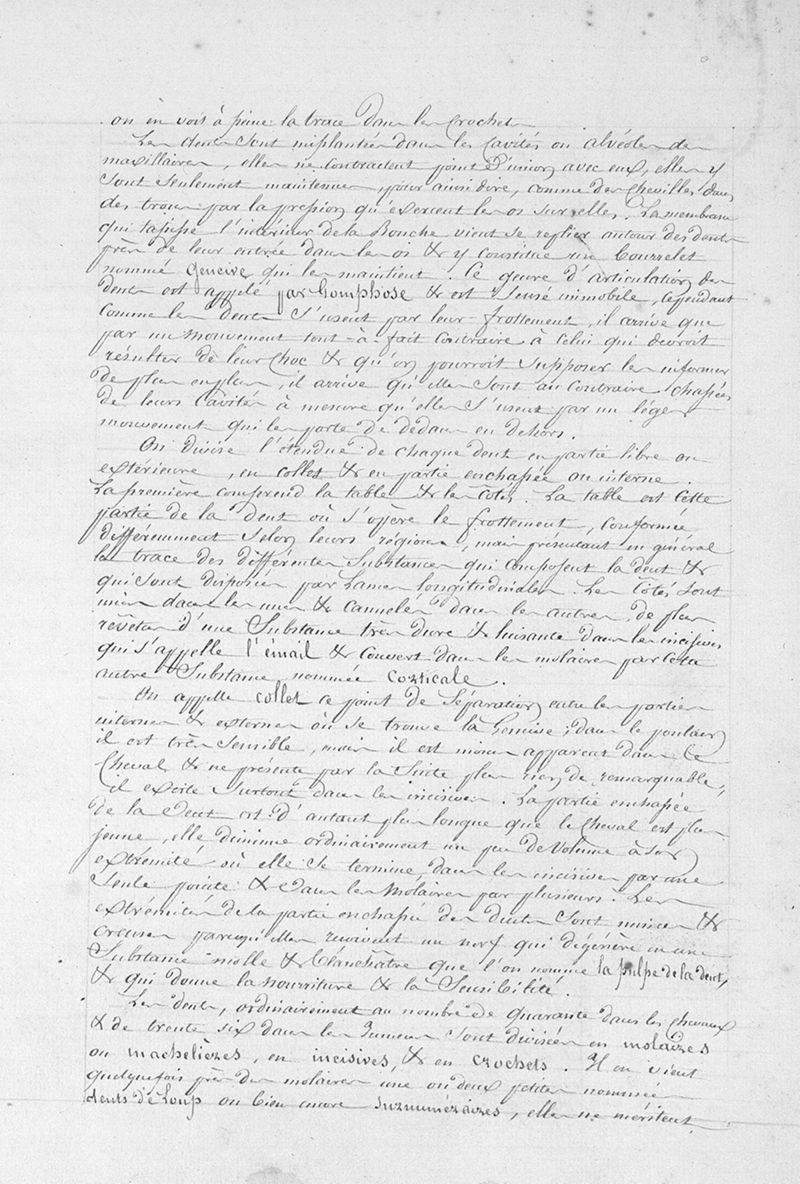 on en voit à peine la trace dans les Crochets.
Les dents sont implantées dans les Cavités ou alvéoles des
maxillaires, elles ne contractent point d'union avec eux, elles y
sont seulement maintenues, pour ainsi dire, comme des Chevilles dans
des trous par la pression qu'exercent les os sur elles. La membrane
qui tapisse l'intérieur de la Bouche, vient se replier autour des dents
près de leur entrée dans les os & y constitue un bourrelet
nommé Gencive qui les maintient. Ce genre d'articulation des
dents est appelé par Gomphose & est sensé immobile, cependant
comme les Dents s'usent par leur frottement, il arrive que
par un mouvement tout-à-fait contraire à celui qui devroit
résulter de leur Choc & qu'on pourroit supposer les enfermer
de plus en plus, il arrive qu'elles sont au contraire chassées
de leurs Cavités à mesure qu'elles s'usent par un léger
mouvement qui les porte de dedans en dehors.
On divise l'étendue de chaque dent en partie libre ou
extérieure, en collet & en partie enchassée ou interne.
La première comprend la table & les côtés. La table est cette
partie de la Dent où s'opère le frottement, conformée
différemment selon leurs régions, mais présentant en général
la trace des différentes Substances qui composent la dent &
qui sont disposées par Lames longitudinales. Les Côtés sont
unis dans les unes & Cannelés dans les autres, de plus
revêtus d'une Substance très dure & luisante dans les incisives
qui s'appelle l'émail & couvert dans les molaires par cette
autre Substance nommée corticale.
On appelle collet ce point de Séparation entre les parties
internes & externes où se trouve la Gencive; dans le poulain
il est très sensible, mais il est moins apparent dans le
Cheval & ne présente par la Suite plus rien de remarquable,
il existe surtout dans les incisives. La partie enchassée
de la Dent est d'autant plus longue que le Cheval est plus
jeune, elle diminue ordinairement un peu de Volume à son
extrémité où elle se termine, dans les incisives par une
seule pointe & dans les Molaires par plusieurs. Les
extrémités de la partie enchassée des dents sont minces &
creuses parcequ'elles reçoivent un nerf qui dégénère en une
Substance molle & blanchâtre que l'on nomme la pulpe de la dent,
& qui donne la nourriture & la Sensibilité.
Les dents, ordinairement au nombre de quarante dans les chevaux
& de trente six dans les Jumens sont divisées en molaires
ou machelières, en incisives, & en crochets. Il en vient
quelquefois près des molaires une ou deux petites nommées
dents de Loup ou bien encore surnuméraires, elles ne méritent